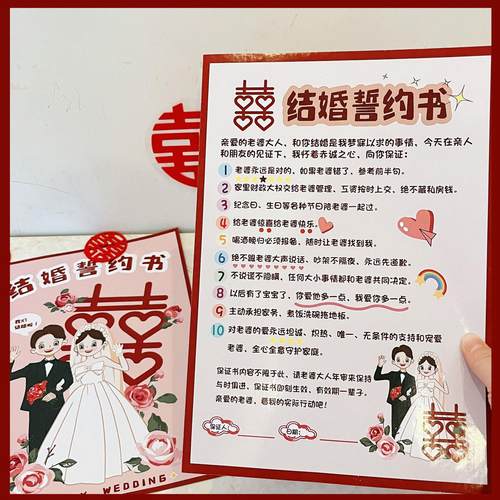 囍
囍 结婚誓约书
亲爱的老婆大人，和你结婚是我梦寐以求的事情，今天在亲人
和朋友的见证下，我怀着赤诚之心，向你保证：
1 老婆永远是对的，如果老婆错了，参考前半句。
2 家里财政大权交给老婆管理，工资按时上交，绝不藏和房钱。
3 纪念日、生日等各种节日陪老婆一起过。
4 给老婆惊喜给老婆快乐。
5 喝酒晚归必须报备，随时让老婆找到我。
6 绝不跟老婆大声说话，吵架不隔夜，永远先道歉。
7 不说谎不隐瞒，任何大小事情都和老婆共同决定。
8 以后有了宝宝了，你爱他多一点，我爱你多一点。
9 主动承担家务，煮饭洗碗拖地板。
10 对老婆的爱永远坦诚、炽热、唯一、无条件的支持和宠爱
老婆，全心全意守护家庭。
保证书内容不限于此，请老婆大人年审来保持
与时俱进，保证书即刻生效，有效期一辈子。
亲爱的老婆，看我的实际行动吧！
保证人：
日期：
囍
囍
结婚誓约书
囍
我们
结婚啦！
WEDDING